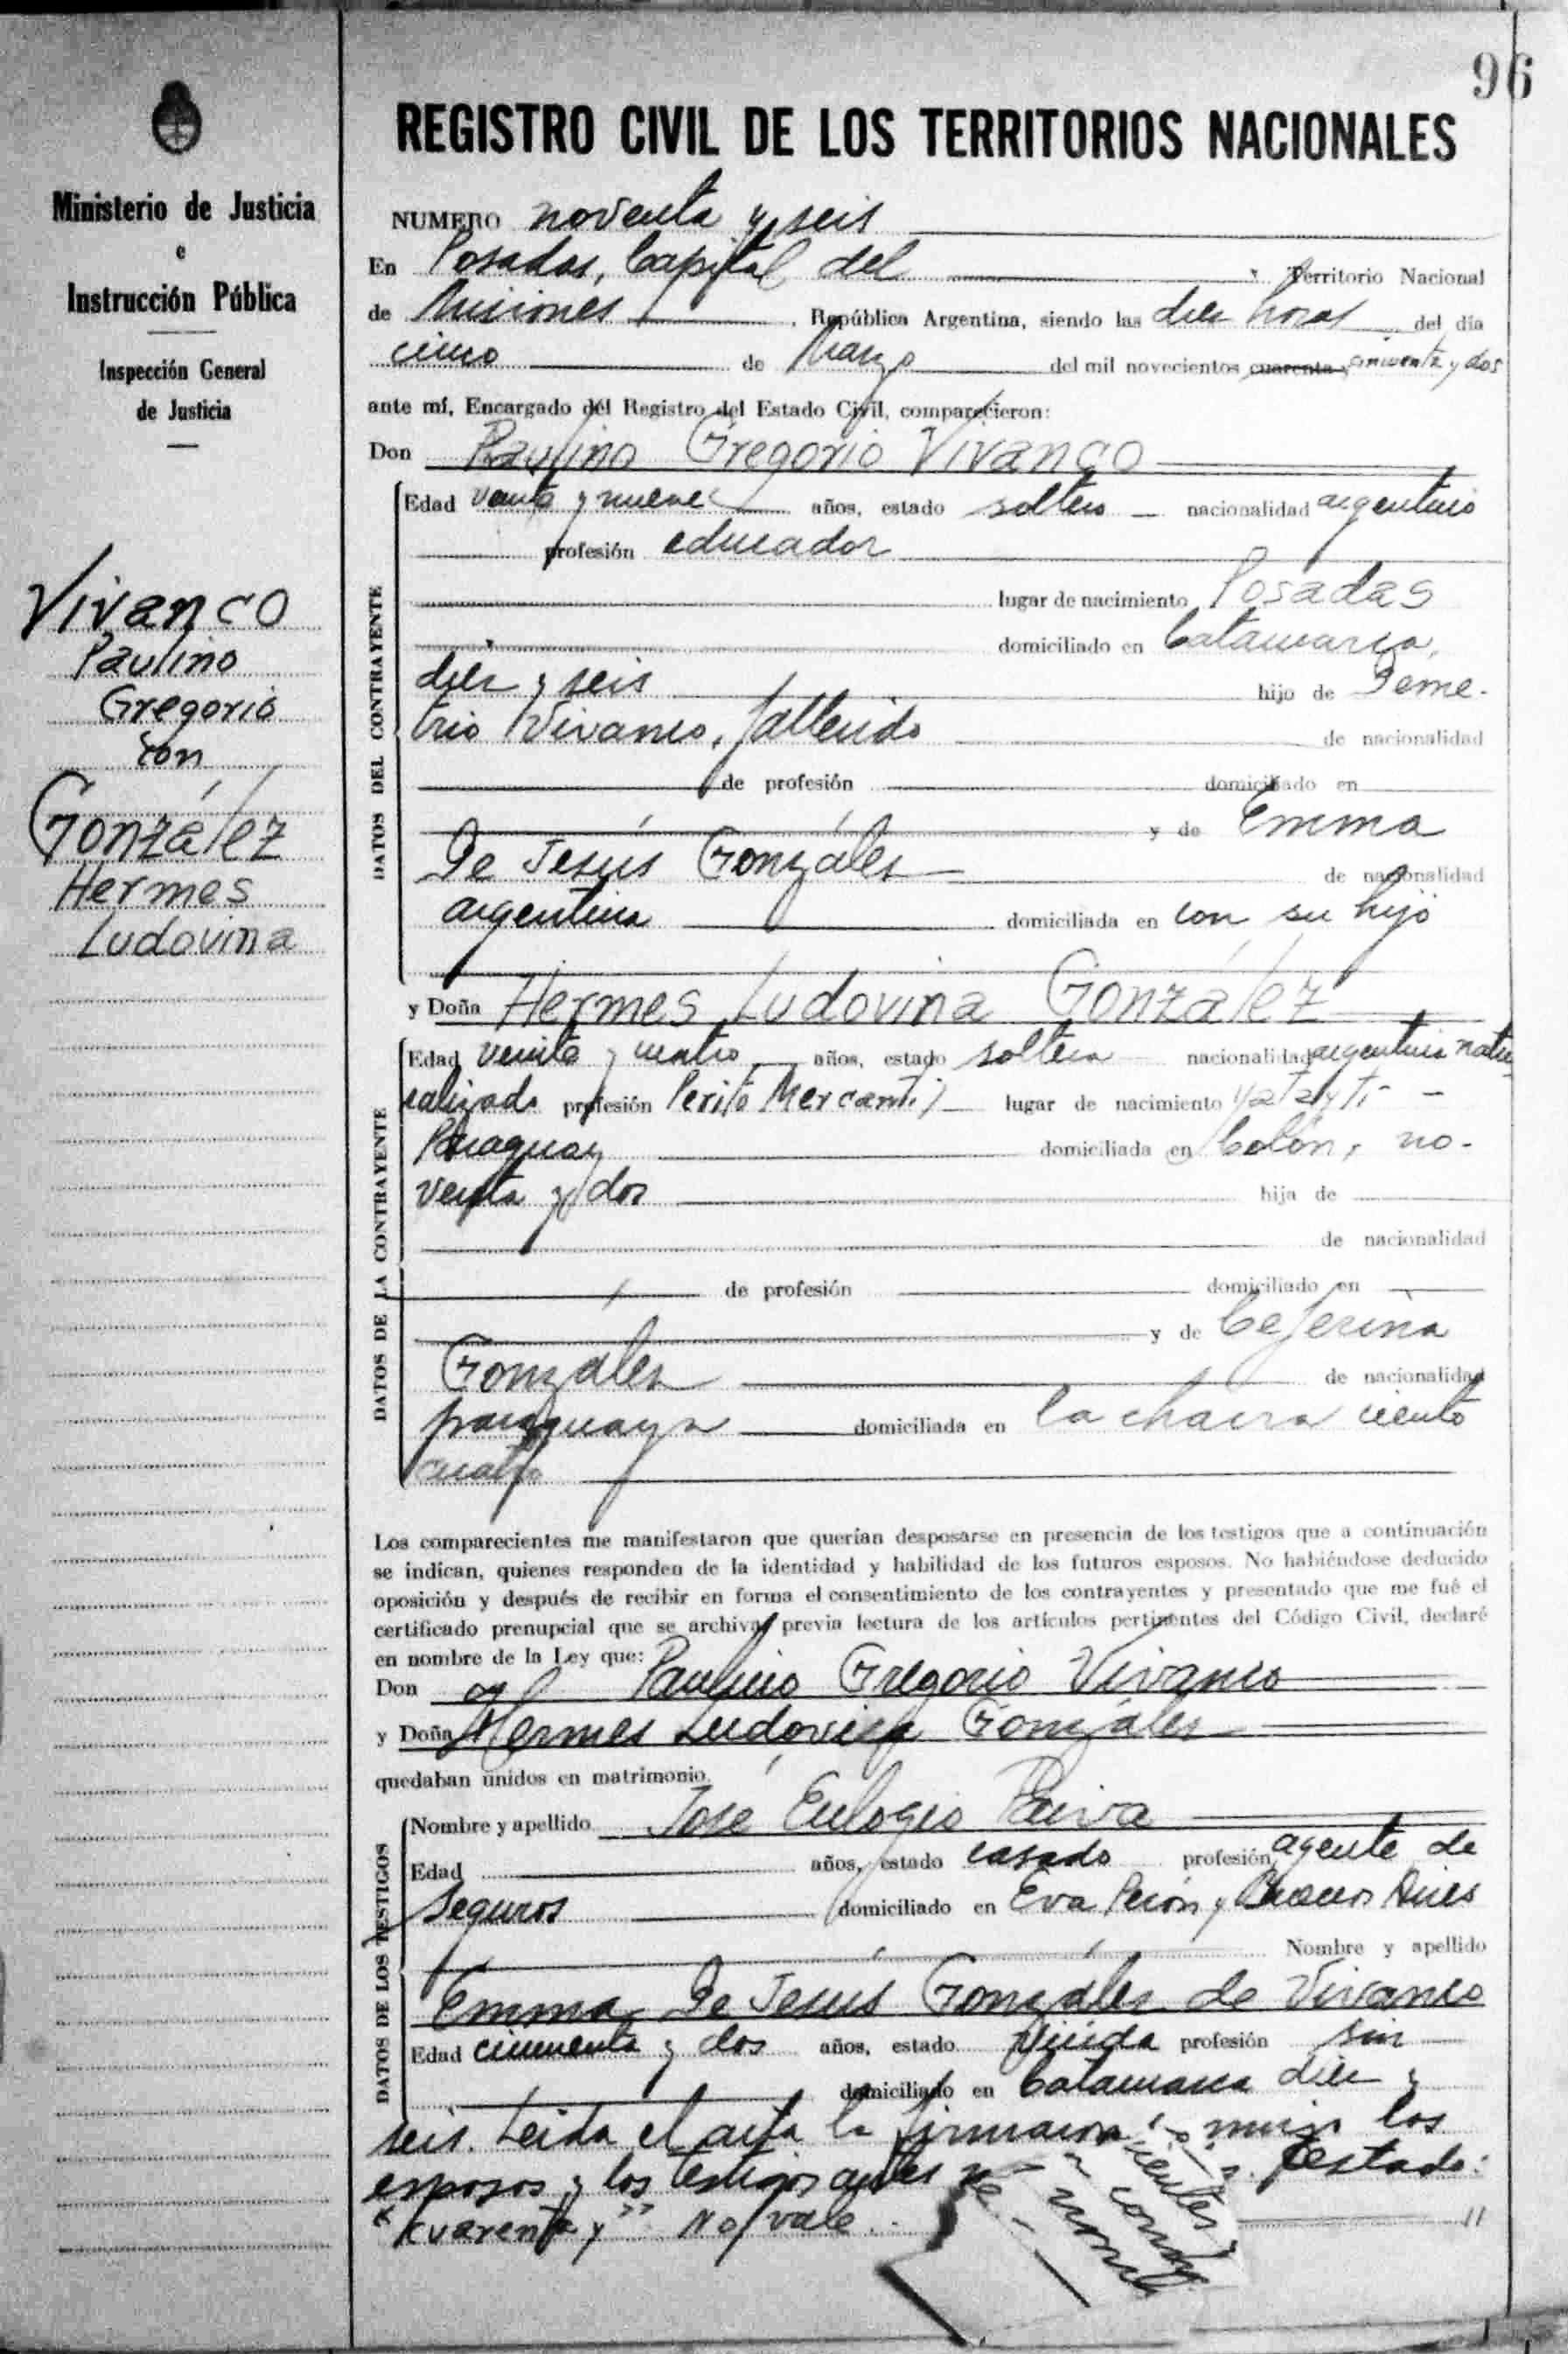 96
REGISTRO CIVIL DE LOS TERRITORIOS NACIONALES
Ministerio de Justicia
e
Instrucción Pública
Inspección General
de Justicia
Vivanco
Paulino
Gregorio
con
González
Hermes
Ludovina
NUMERO noventa y seis
En Posadas, Capital del , Territorio Nacional
de Misiones , República Argentina, siendo las diez horas del día
cinco de Marzo del mil novecientos cuarenta y cincuenta y dos
ante mí, Encargado del Registro del Estado Civil, comparecieron:
Don Paulino Gregorio Vivanco
DATOS DEL CONTRAYENTE
Edad veinte y nueve años, estado soltero nacionalidad argentino
profesión educador
lugar de nacimiento Posadas
domiciliado en Catamarca,
diez y seis hijo de Deme-
trio Vivanco, fallecido de nacionalidad
de profesión domiciliado en
y de Emma
De Jesús Gonzáles de nacionalidad
argentina domiciliada en con su hijo
y Doña Hermes Ludovina González
DATOS DE LA CONTRAYENTE
Edad veinte y cuatro años, estado soltera nacionalidad argentina natu-
ralizada profesión Perito Mercantil lugar de nacimiento Yataytí -
Paraguay domiciliada en Colón, no-
venta y dos hija de
de nacionalidad
de profesión domiciliado en
y de Ceferina
Gonzáles de nacionalidad
paraguaya domiciliada en la chacra ciento
cuatro
Los comparecientes me manifestaron que querían desposarse en presencia de los testigos que a continuación
se indican, quienes responden de la identidad y habilidad de los futuros esposos. No habiéndose deducido
oposición y después de recibir en forma el consentimiento de los contrayentes y presentado que me fué el
certificado prenupcial que se archiva, previa lectura de los artículos pertinentes del Código Civil, declaré
en nombre de la Ley que:
Don Paulino Gregorio Vivanco
y Doña Hermes Ludovina Gonzáles
quedaban unidos en matrimonio.
DATOS DE LOS TESTIGOS
Nombre y apellido José Eulogio Paiva
Edad años, estado casado profesión agente de
Seguros domiciliado en Eva Perón y Buenos Aires
Nombre y apellido
Emma De Jesús Gonzáles de Vivanco
Edad cincuenta y dos años, estado viuda profesión sin
domiciliado en Catamarca diez y
seis. Leída el acta la firmaron los
esposos y los testigos antes Testado:
"cuarenta y" No vale.